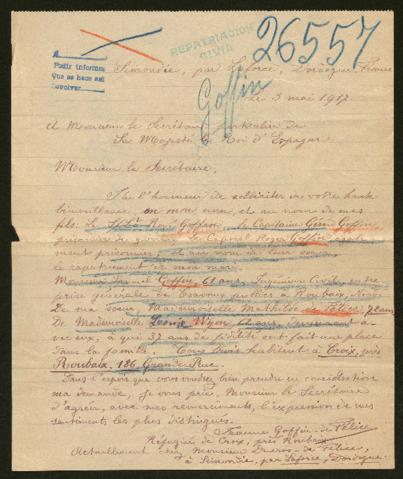 REPATRIACION
CIVIL
26557
Goffin
A
Pedir informes
Que se hace asi
Devolver
Simondie, par Laforce, Dordogne, France
le 3 mai 1917
A Monsieur le Secrétaire particulier de
Sa Majesté le Roi d'Espagne
Monsieur le Secrétaire,
J'ai l'honneur de solliciter de votre haute
bienveillance en mon nom, et au nom de mes
fils: Le Goffin, le Capitaine Goffin
prisonnier de guerre, le Caporal Roger Goffin
prisonnier, et au nom de leur sœur,
le rapatriement de mon mari
Monsieur Goffin, 61 ans, Ingénieur Civil, entre
prise générale de travaux publics à Roubaix, Nord
De ma sœur Mademoiselle Mathilde de Félice, 72 ans
De Mademoiselle
à qui 37 ans de fidélité ont fait une place
dans la famille. Tous trois habitent à Croix, près
Roubaix, 186, Grande Rue.
Dans l'espoir que vous voudrez bien prendre en considération
ma demande, je vous prie, Monsieur le Secrétaire
d'agréer, avec mes remerciements, l'expression de mes
sentiments les plus distingués.
Goffin-de Félice
Réfugiée de Croix, près Roubaix
Actuellement chez Monsieur de Félice,
à Simondie, par Laforce, Dordogne.